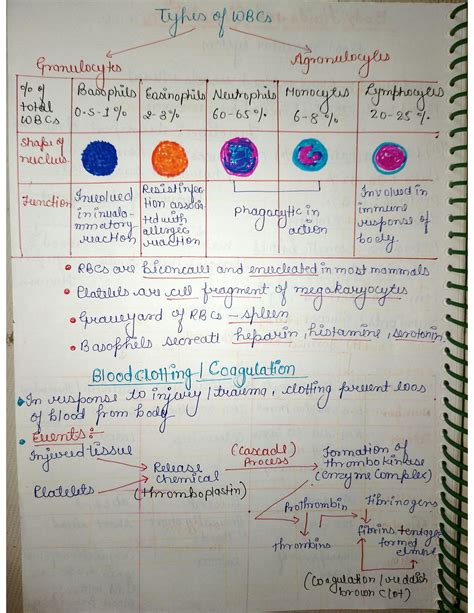 Types of WBCs
Granulocytes
Agranulocytes
% of total WBCs
Basophils 0.5-1%
Eosinophils 2-3%
Neutrophils 60-65%
Monocytes 6-8%
Lymphocytes 20-25%
Shape of nucleus
Function
Involved in inflammatory reaction
Resist infection associated with allergic reaction
phagocytic in action
Involved in immune response of body.
• RBCs are biconcave and enucleated in most mammals
• Platelets are cell fragment of megakaryocytes
• Graveyard of RBCs - spleen
• Basophils secreate heparin, histamine, serotonin.
Blood clotting / Coagulation
In response to injury / trauma, clotting prevent loss
of blood from body
• Events:-
Injured tissue
Platelets
Release chemical
(thromboplastin)
(Cascade) Process
Formation of thrombokinase
(enzyme complex)
Prothrombin
Thrombins
Fibrinogens
fibrins + formed element
(Coagulation / reddish brown clot)